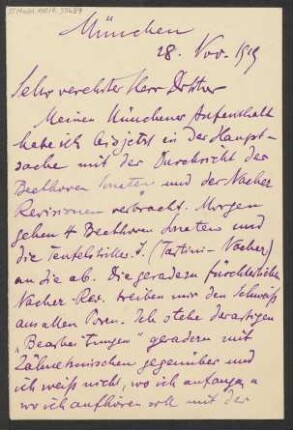 München
28. Nov. 1919
Sehr verehrter Herr Doktor
Meinen Münchener Aufenthalt
habe ich bis jetzt in der Haupt-
sache mit der Durchsicht der
Beethoven Sonaten und der Nacher
Revisionen verbracht. Morgen
gehen 4 Beethoven Sonaten und
die Teufelstriller S. (Tartini-Nacher)
an die ab. Die geradezu fürchterlichen
Nacher-Rev. treiben mir den Schweiß
aus allen Poren. Ich stehe derartigen
„Bearbeitungen" geradezu mit
Zähneknirschen gegenüber und
ich weiß nicht, wo ich anfangen u
wo ich aufhören soll mit der